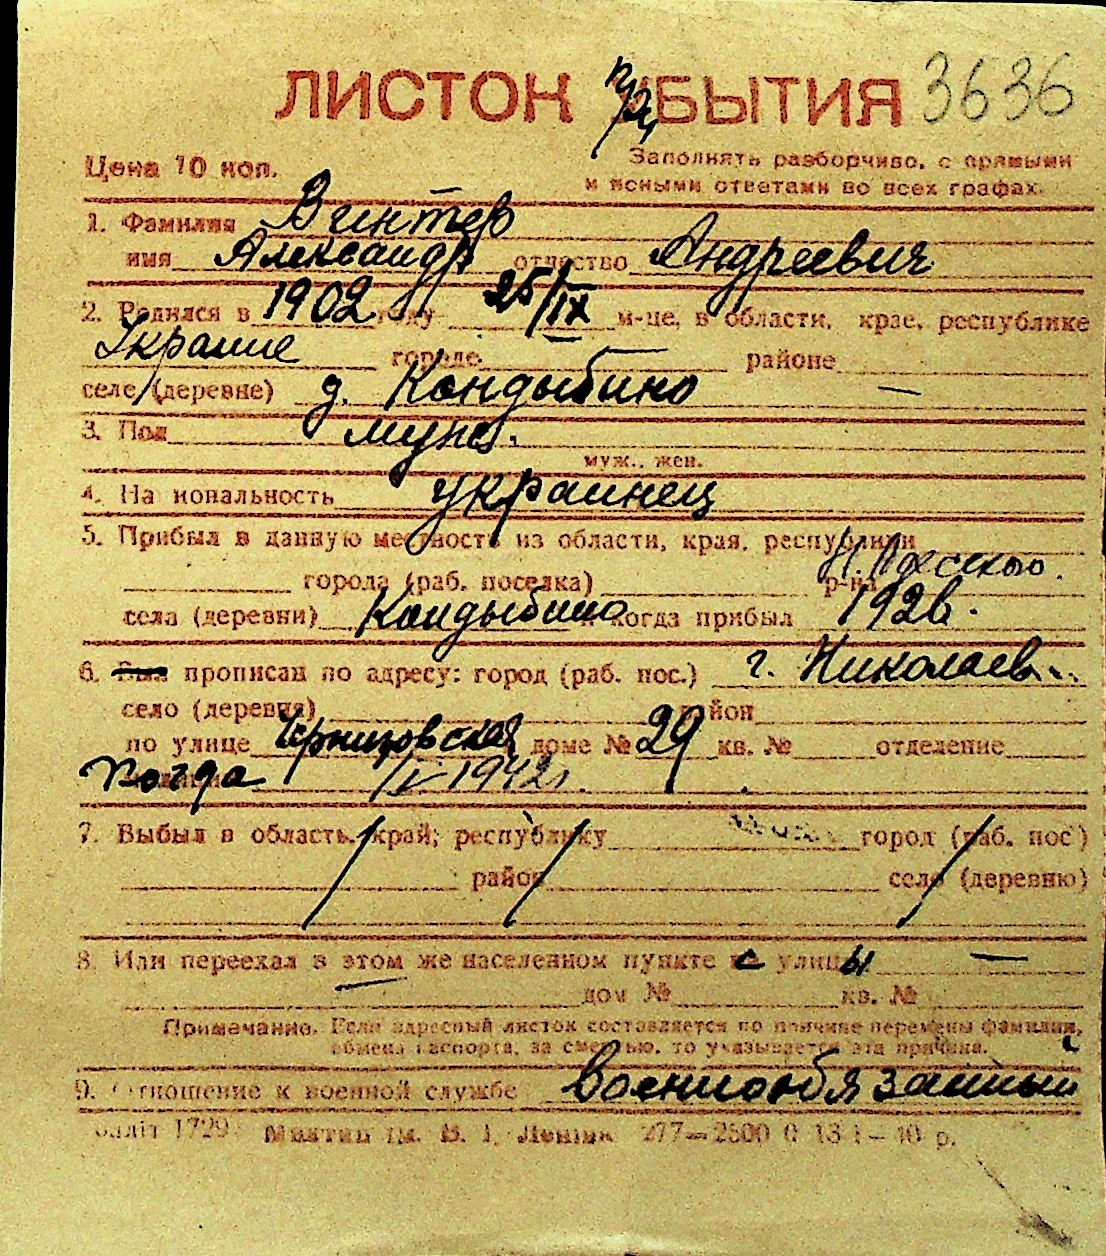 ЛИСТОК при БЫТИЯ 3636
Цена 10 коп. Заполнять разборчиво, с прямыми
и ясными ответами во всех графах.
1. Фамилия Винтер
имя Александр отчество Андреевич
2. Родился в 1902 году 25/IX м-це, в области, крае, республике
Украине городе — районе
селе (деревне) д. Кондыбино —
3. Пол муж.
муж., жен.
4. На иональность украинец
5. Прибыл в данную местность из области, края, республики
города (раб. поселка) р-на
села (деревни) Кондыбино когда прибыл 1926.
6. Был прописан по адресу: город (раб. пос.) г. Николаев
село (деревня) район
по улице Черниговская доме № 29 кв. № отделение
когда IV 1942 г.
7. Выбыл в область, край, республику город (раб. пос)
район село (деревню)
8. Или переехал в этом же населенном пункте с улицы —
— дом № кв. №
Примечание. Если адресный листок составляется по причине перемены фамилии,
обмена паспорта, за смертью, то указывается эта причина.
9. Отношение к военной службе военнообязанный
1729 ім. В. І. Леніна 277—2500 0 13 I—40 р.